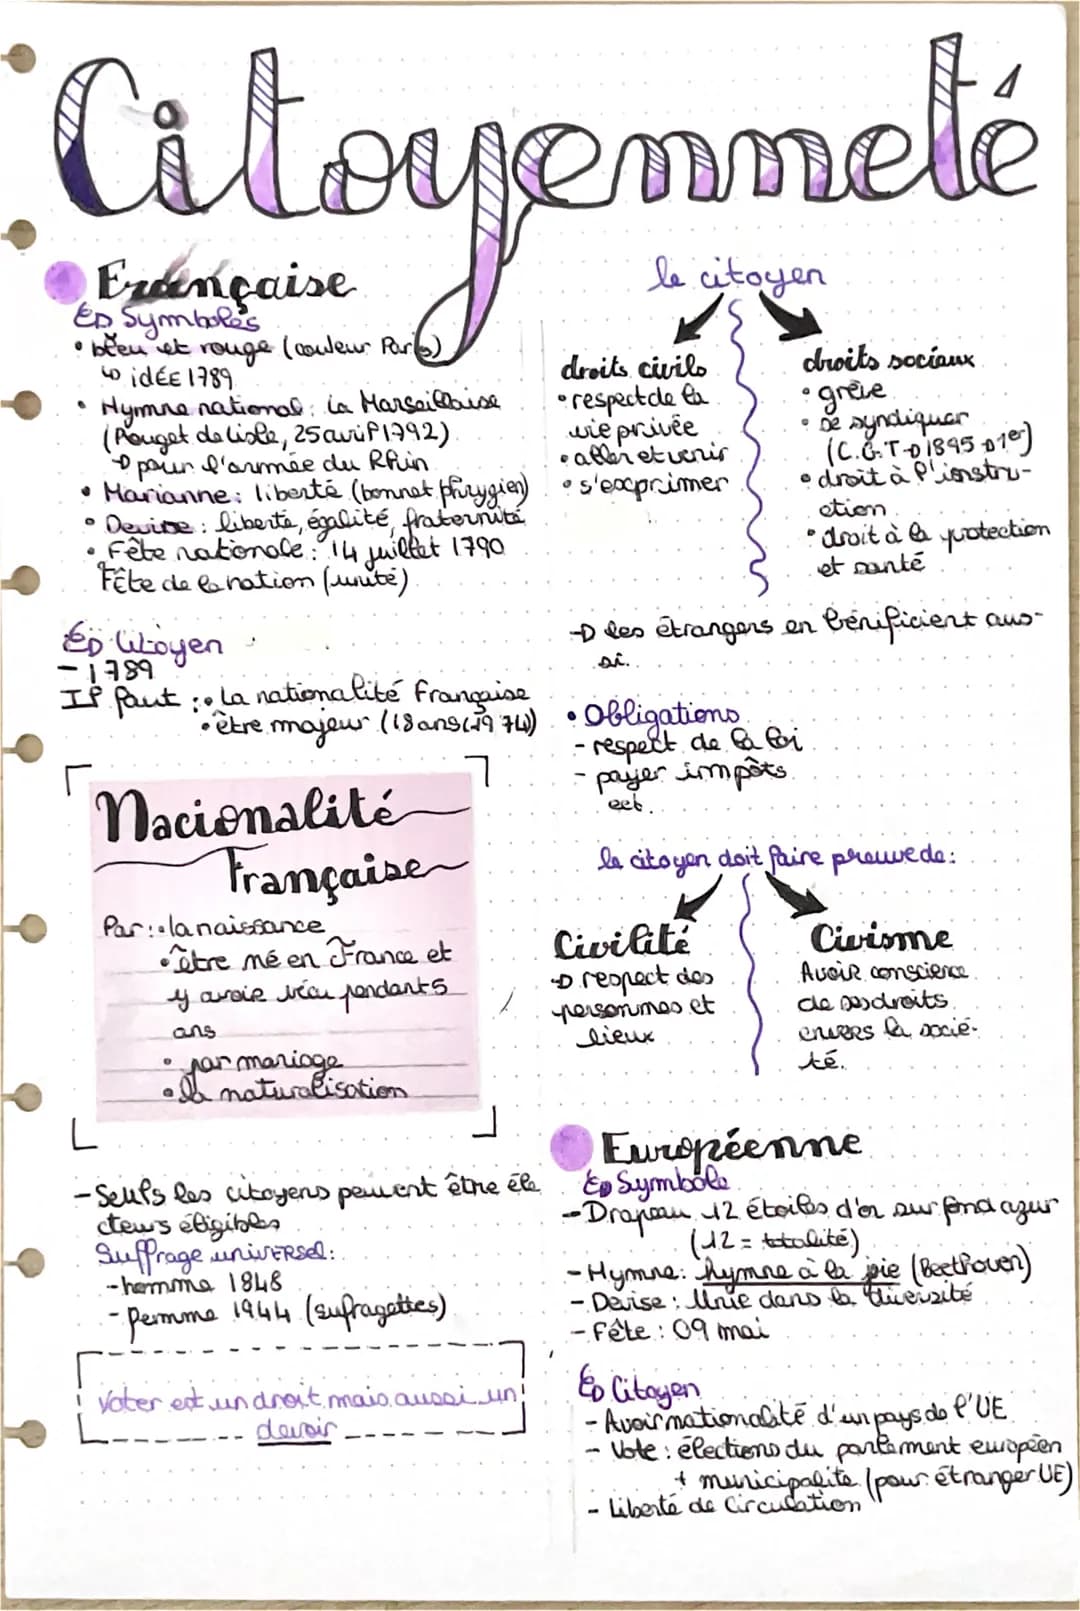 Citoyenneté
Française
Symboles
• bleu et rouge (couleur Paris)
↳ idée 1789
• Hymne national : la Marseillaise
(Rouget de Lisle, 25 avril 1792)
→ pour l'armée du Rhin
• Marianne : liberté (bonnet phrygien)
• Devise : liberté, égalité, fraternité
• Fête nationale : 14 juillet 1790
Fête de la nation (unité)
Citoyen
- 1789
Il faut : • La nationalité Française
• être majeur (18 ans (1974)
Nacionalité
Française
Par : • la naissance
• être né en France et
y avoir vécu pendant 5
ans
• par mariage
• la naturalisation
- Seuls les citoyens peuvent être éle
cteurs éligibles
Suffrage universel :
- homme 1848
- femme 1944 (sufragettes)
Voter est un droit mais aussi un
devoir
le citoyen
droits civils
• respect de la
vie privée
• aller et venir
• s'exprimer
droits sociaux
• grève
• se syndiquer
(C.G.T → 1895 → 1er)
• droit à l'instru-
ction
• droit à la protection
et santé
→ les étrangers en bénificient aus-
si.
• Obligations
- respect de la loi
- payer impôts
ect.
le citoyen doit faire preuve de :
Civilité
→ respect des
personnes et
lieux
Civisme
Avoir conscience
de ses droits
envers la socié-
té.
Européenne
Symbole
- Drapeau 12 étoiles d'or sur fond azur
(12 = totalité)
- Hymne : hymne à la joie (Beethoven)
- Devise : Unie dans la diversité
- Fête : 09 mai
Citoyen
- Avoir nationalité d'un pays de l'UE
- Vote : élections du parlement européen
+ municipalité (pour étranger UE)
- Liberté de Circulation